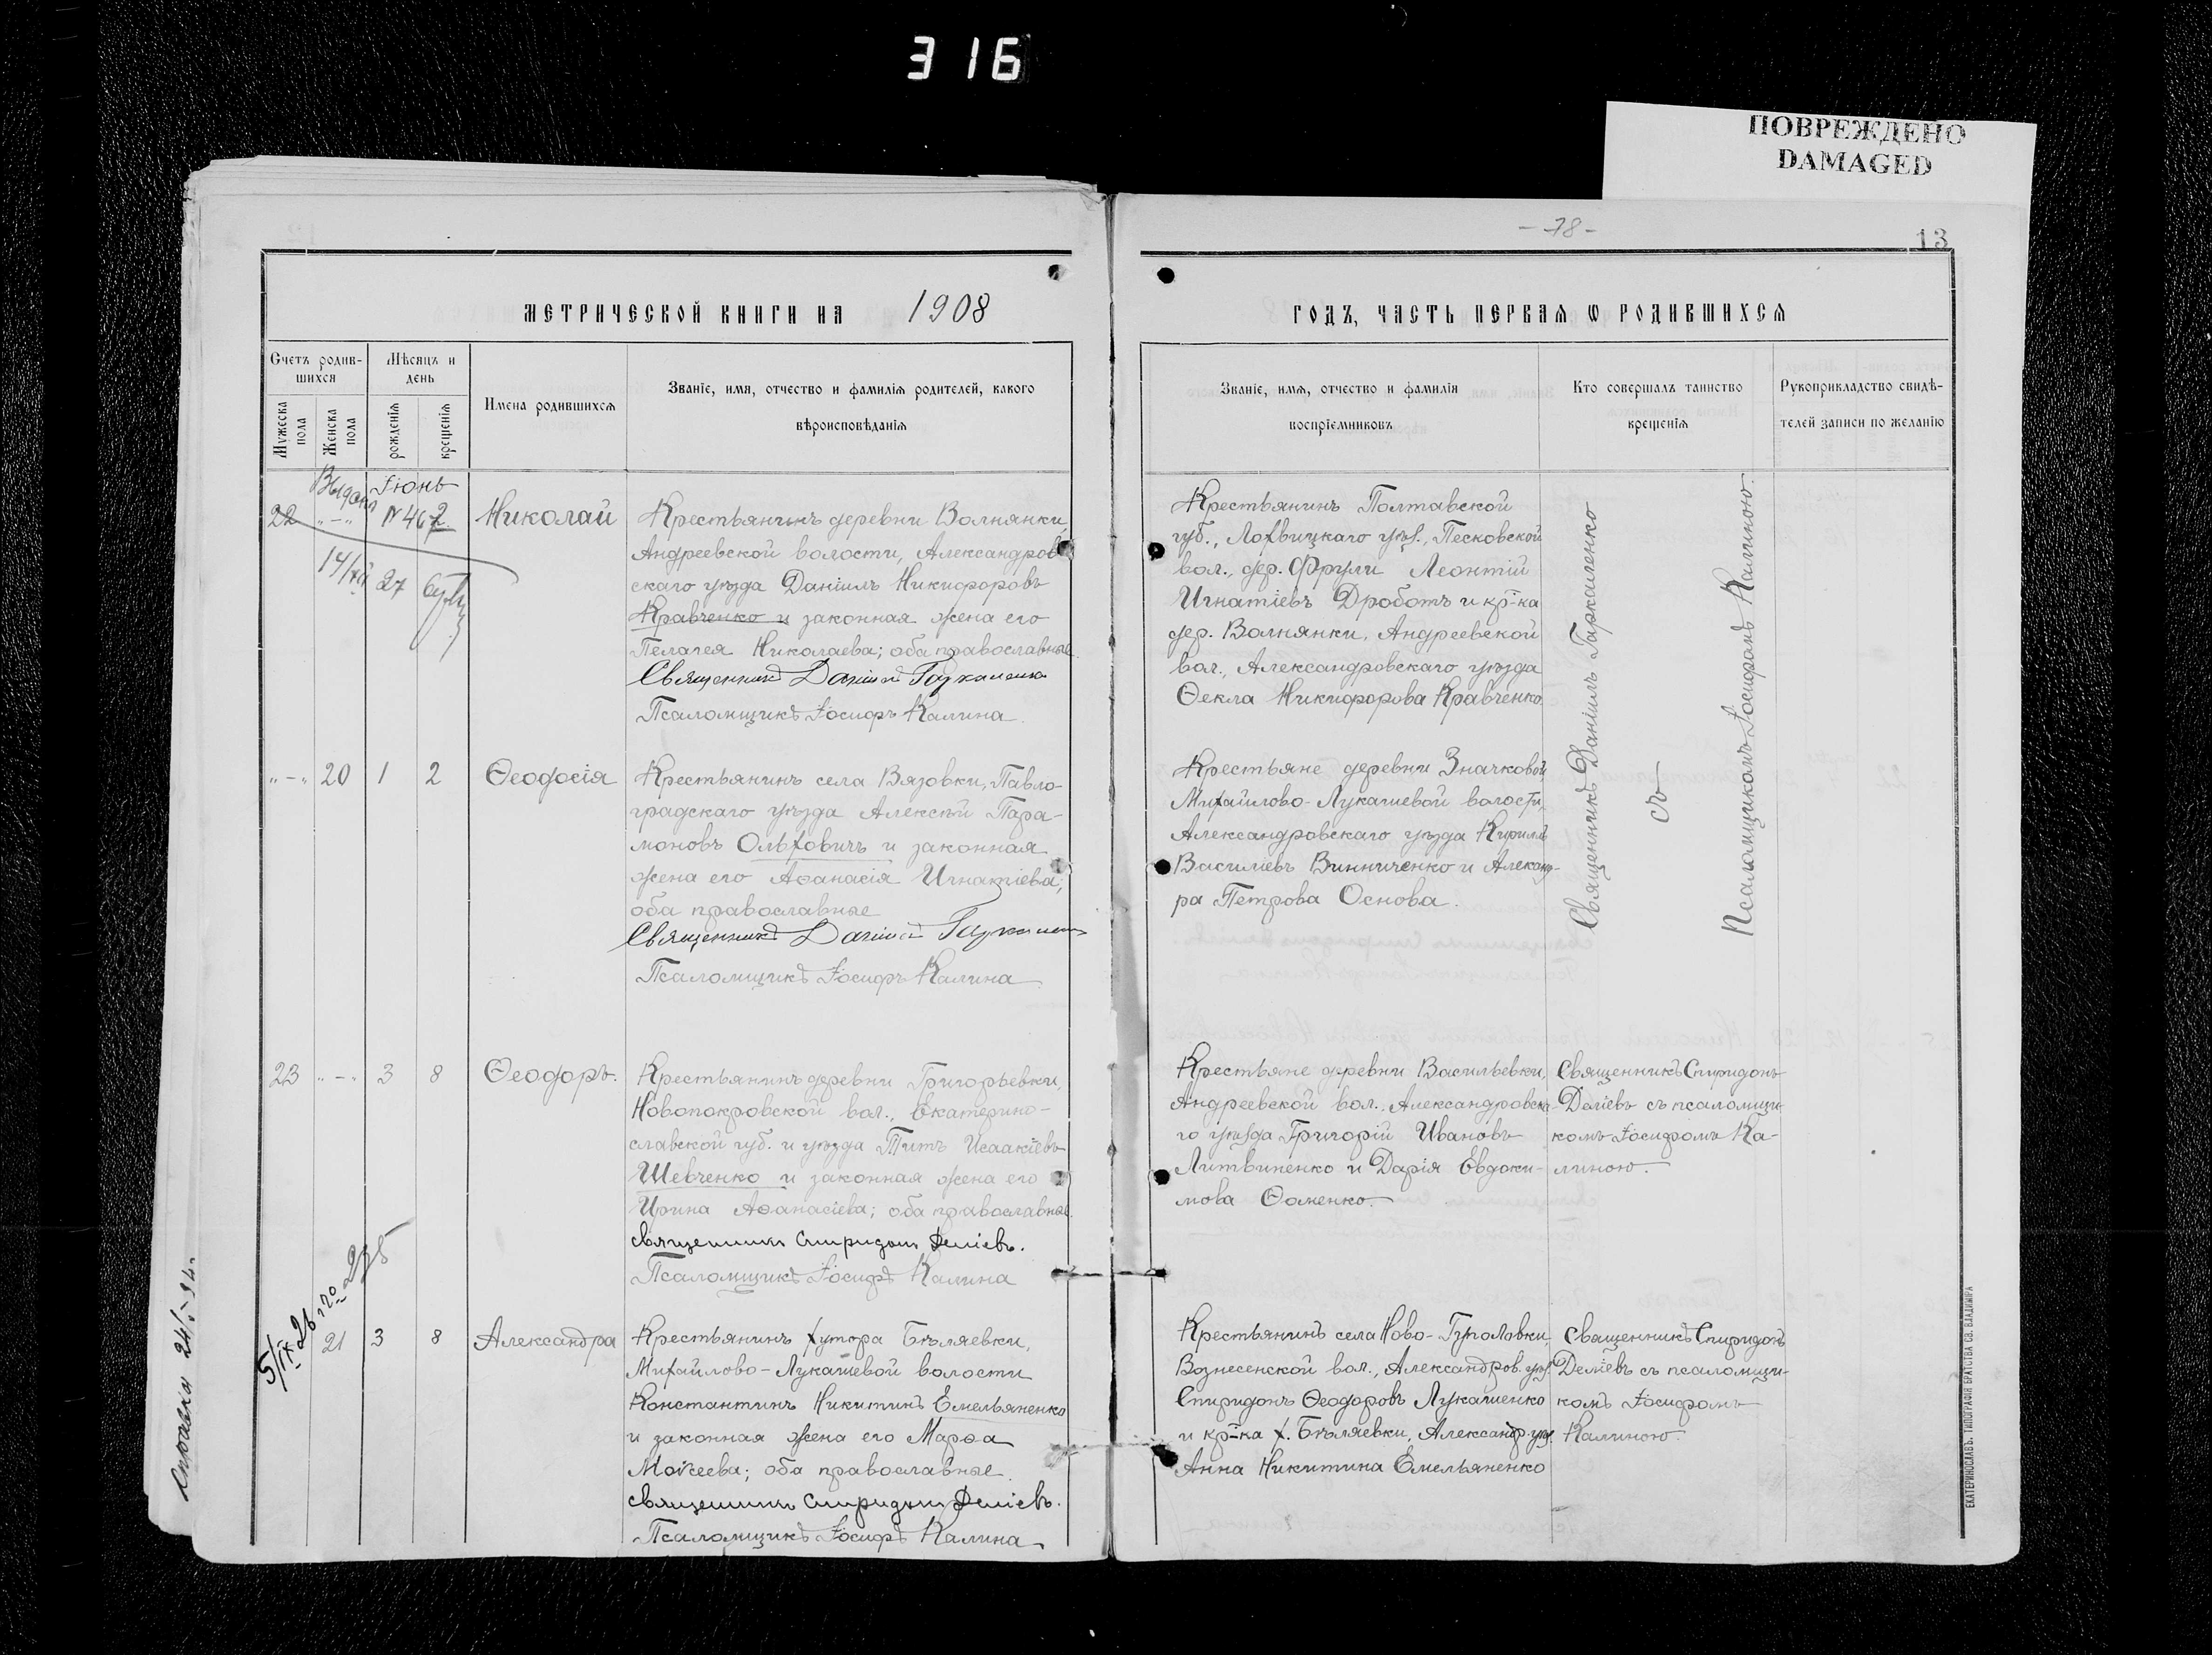 316
ПОВРЕЖДЕНО
DAMAGED
МЕТРИЧЕСКОЙ КНИГИ НА 1908
Счетъ родив-
шихся
Мужеска пола
Женска пола
Мѣсяцъ и
день
рожденія
крещенія
Имена родившихся
Званіе, имя, отчество и фамилія родителей, какого
вѣроисповѣданія
Выдана
Іюнь
22 „-„ № 46 2. Николай
14/VII 27
Крестьянинъ деревни Волнянки,
Андреевской волости, Александров
скаго уѣзда Даніилъ Никифоровъ
Кравченко и законная жена его
Пелагея Николаева; оба православные.
Священникъ Даніилъ Гаркаленко
Псаломщикъ Іосифъ Калина.
„-„ 20 1 2 Ѳеодосія
Крестьянинъ села Вязовки, Павло-
градскаго уѣзда Алексѣй Пара-
моновъ Ольховичъ и законная
жена его Аѳанасія Игнатіева;
оба православные
Священникъ Даніилъ Гаркаленко
Псаломщикъ Іосифъ Калина
23 „-„ 3 8 Ѳеодоръ.
Крестьянинъ деревни Григорьевки,
Новопокровской вол., Екатерино-
славской губ. и уѣзда Титъ Исаакіевъ
Шевченко и законная жена его
Ирина Аѳанасіева; оба православные.
священникъ Спиридонъ Деліевъ.
Псаломщикъ Іосифъ Калина
5/IX 26
21 3 8 Александра
Крестьянинъ хутора Бѣляевки,
Михайлово-Лукашевой волости
Константинъ Никитинъ Емельяненко
и законная жена его Марѳа
Моисеева; оба православные.
священникъ Спиридонъ Деліевъ.
Псаломщикъ Іосифъ Калина
-78-
13
ГОДЪ, ЧАСТЬ ПЕРВАЯ Ѡ РОДИВШИХСЯ
Званіе, имя, отчество и фамилія
воспріемниковъ
Кто совершалъ таинство
крещенія
Рукоприкладство свидѣ-
телей записи по желанію
Крестьянинъ Полтавской
губ., Лохвицкаго уѣз., Песковской
вол., дер. Фрули Леонтій
Игнатіевъ Дроботъ и кр-ка
дер. Волнянки, Андреевской
вол., Александровскаго уѣзда
Ѳекла Никифорова Кравченко.
Священникъ Даніилъ Гаркаленко
съ
Псаломщикомъ Іосифомъ Калиною.
Крестьяне деревни Значковой,
Михайлово-Лукашевой волости,
Александровскаго уѣзда Кириллъ
Василіевъ Винниченко и Александ-
ра Петрова Основа.
Крестьяне деревни Васильевки,
Андреевской вол., Александровска-
го уѣзда Григорій Ивановъ
Литвиненко и Дарія Евдоки-
мова Ѳоменко.
Священникъ Спиридонъ
Деліевъ съ псаломщи-
комъ Іосифомъ Ка-
линою.
Крестьянинъ села Ново-Гуполовки,
Вознесенской вол., Александров. уѣз.
Спиридонъ Ѳеодоровъ Лукашенко
и кр-ка х. Бѣляевки, Александр. уѣз.
Анна Никитина Емельяненко
Священникъ Спиридонъ
Деліевъ съ псаломщи-
комъ Іосифомъ
Калиною.
ЕКАТЕРИНОСЛАВЪ. ТИПОГРАФІЯ БРАТСТВА СВ. ВЛАДИМІРА